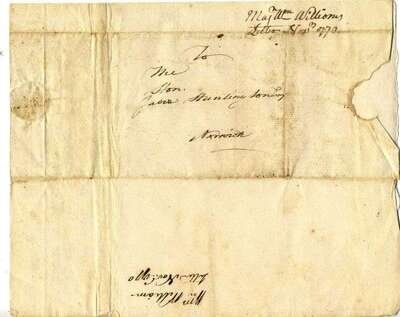 Majr Wm Williams
Letter Novr 1770
To
The
Hon.
Jabez Huntington Esqr
Norwich
Wm William
Novr 1770